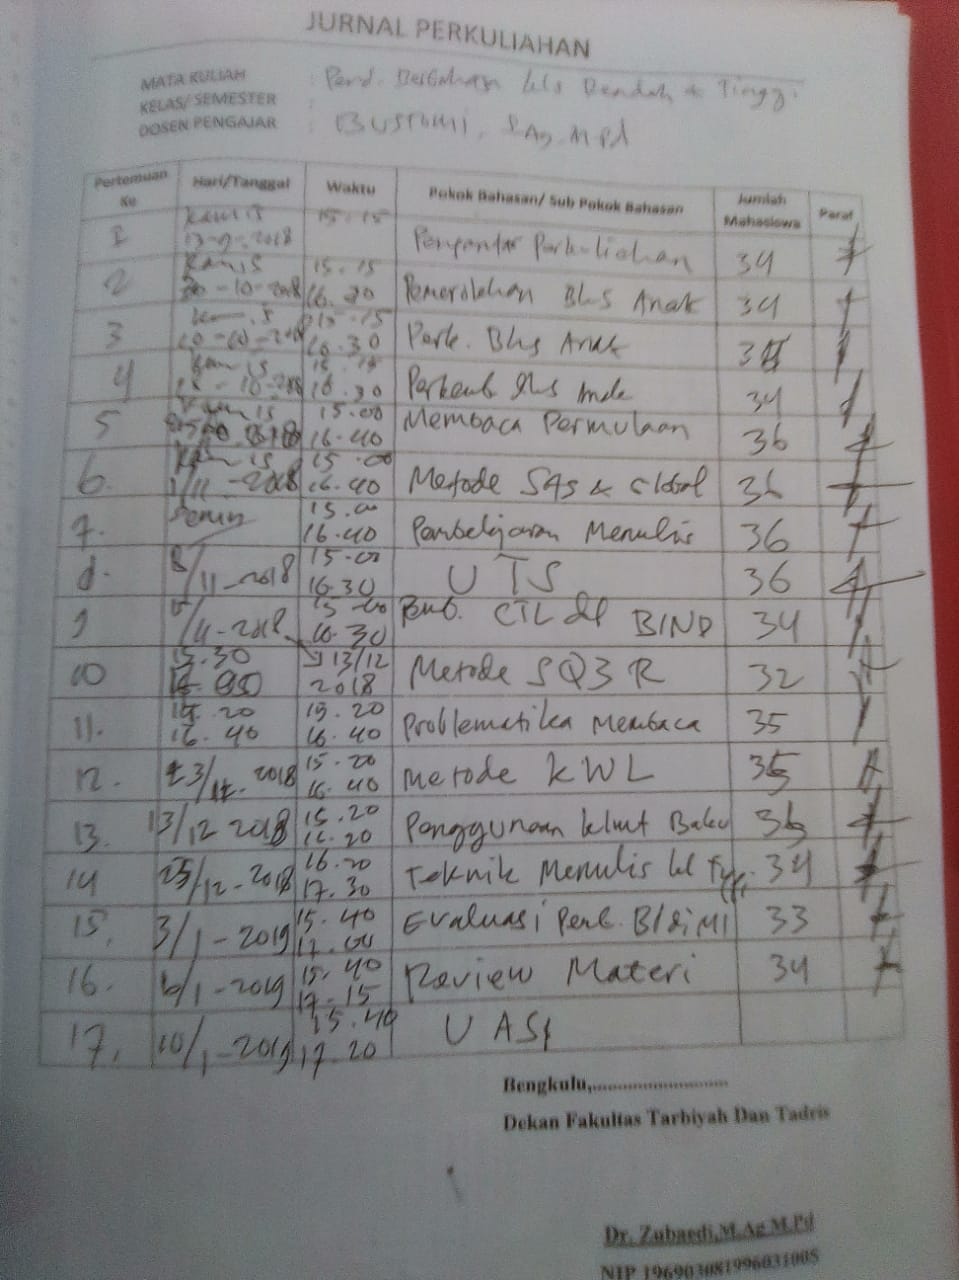 JURNAL PERKULIAHAN
MATA KULIAH : Berbahasa kls Rendah + Tinggi
KELAS/ SEMESTER
DOSEN PENGAJAR : BUSTOMI, S.Ag. M.Pd
Pertemuan Ke Hari/Tanggal Waktu Pokok Bahasan/ Sub Pokok Bahasan Jumlah Mahasiswa Paraf
1 Kamis 13-9-2018 15.15 Pengantar Perkuliahan 34
2 Kamis -10-2018 15.15 16.20 Pemerolehan Bhs Anak 34
3 15.15 16.30 Perk. Bhs Anak
4 Kamis -10-2018 .30 Perkemb Bhs Anak 34
5 Kamis 15.00 16.40 Membaca Permulaan 36
6. Kamis 1/11-2018 15.00 16.40 Metode SAS & Global 36
7. Senin 15.00 16.40 Pembelajaran Menulis 36
8. 8/11-2018 15.00 16.30 UTS 36
9 /11-2018 15.00 16.30 Pemb. CTL BIND 34
10 15.30 13/12 2018 Metode SQ3R 32
11. 16.40 15.20 16.40 Problematika Membaca 35
12. 2018 15.20 16.40 Metode KWL 35
13. 13/12 2018 15.20 16.20 Penggunaan klmt Baku 36
14 /12-2018 16.20 17.30 Teknik Menulis kl 34
15. 3/1-2019 15.40 17.00 Evaluasi Pemb. BI di MI 33
16. 6/1-2019 15.40 17-15 Review Materi 34
17. 10/1-2019 15.40 17.20 UAS
Bengkulu,............................
Dekan Fakultas Tarbiyah Dan Tadris
Dr. Zubaedi,M.Ag M.Pd
NIP 196903081996031005